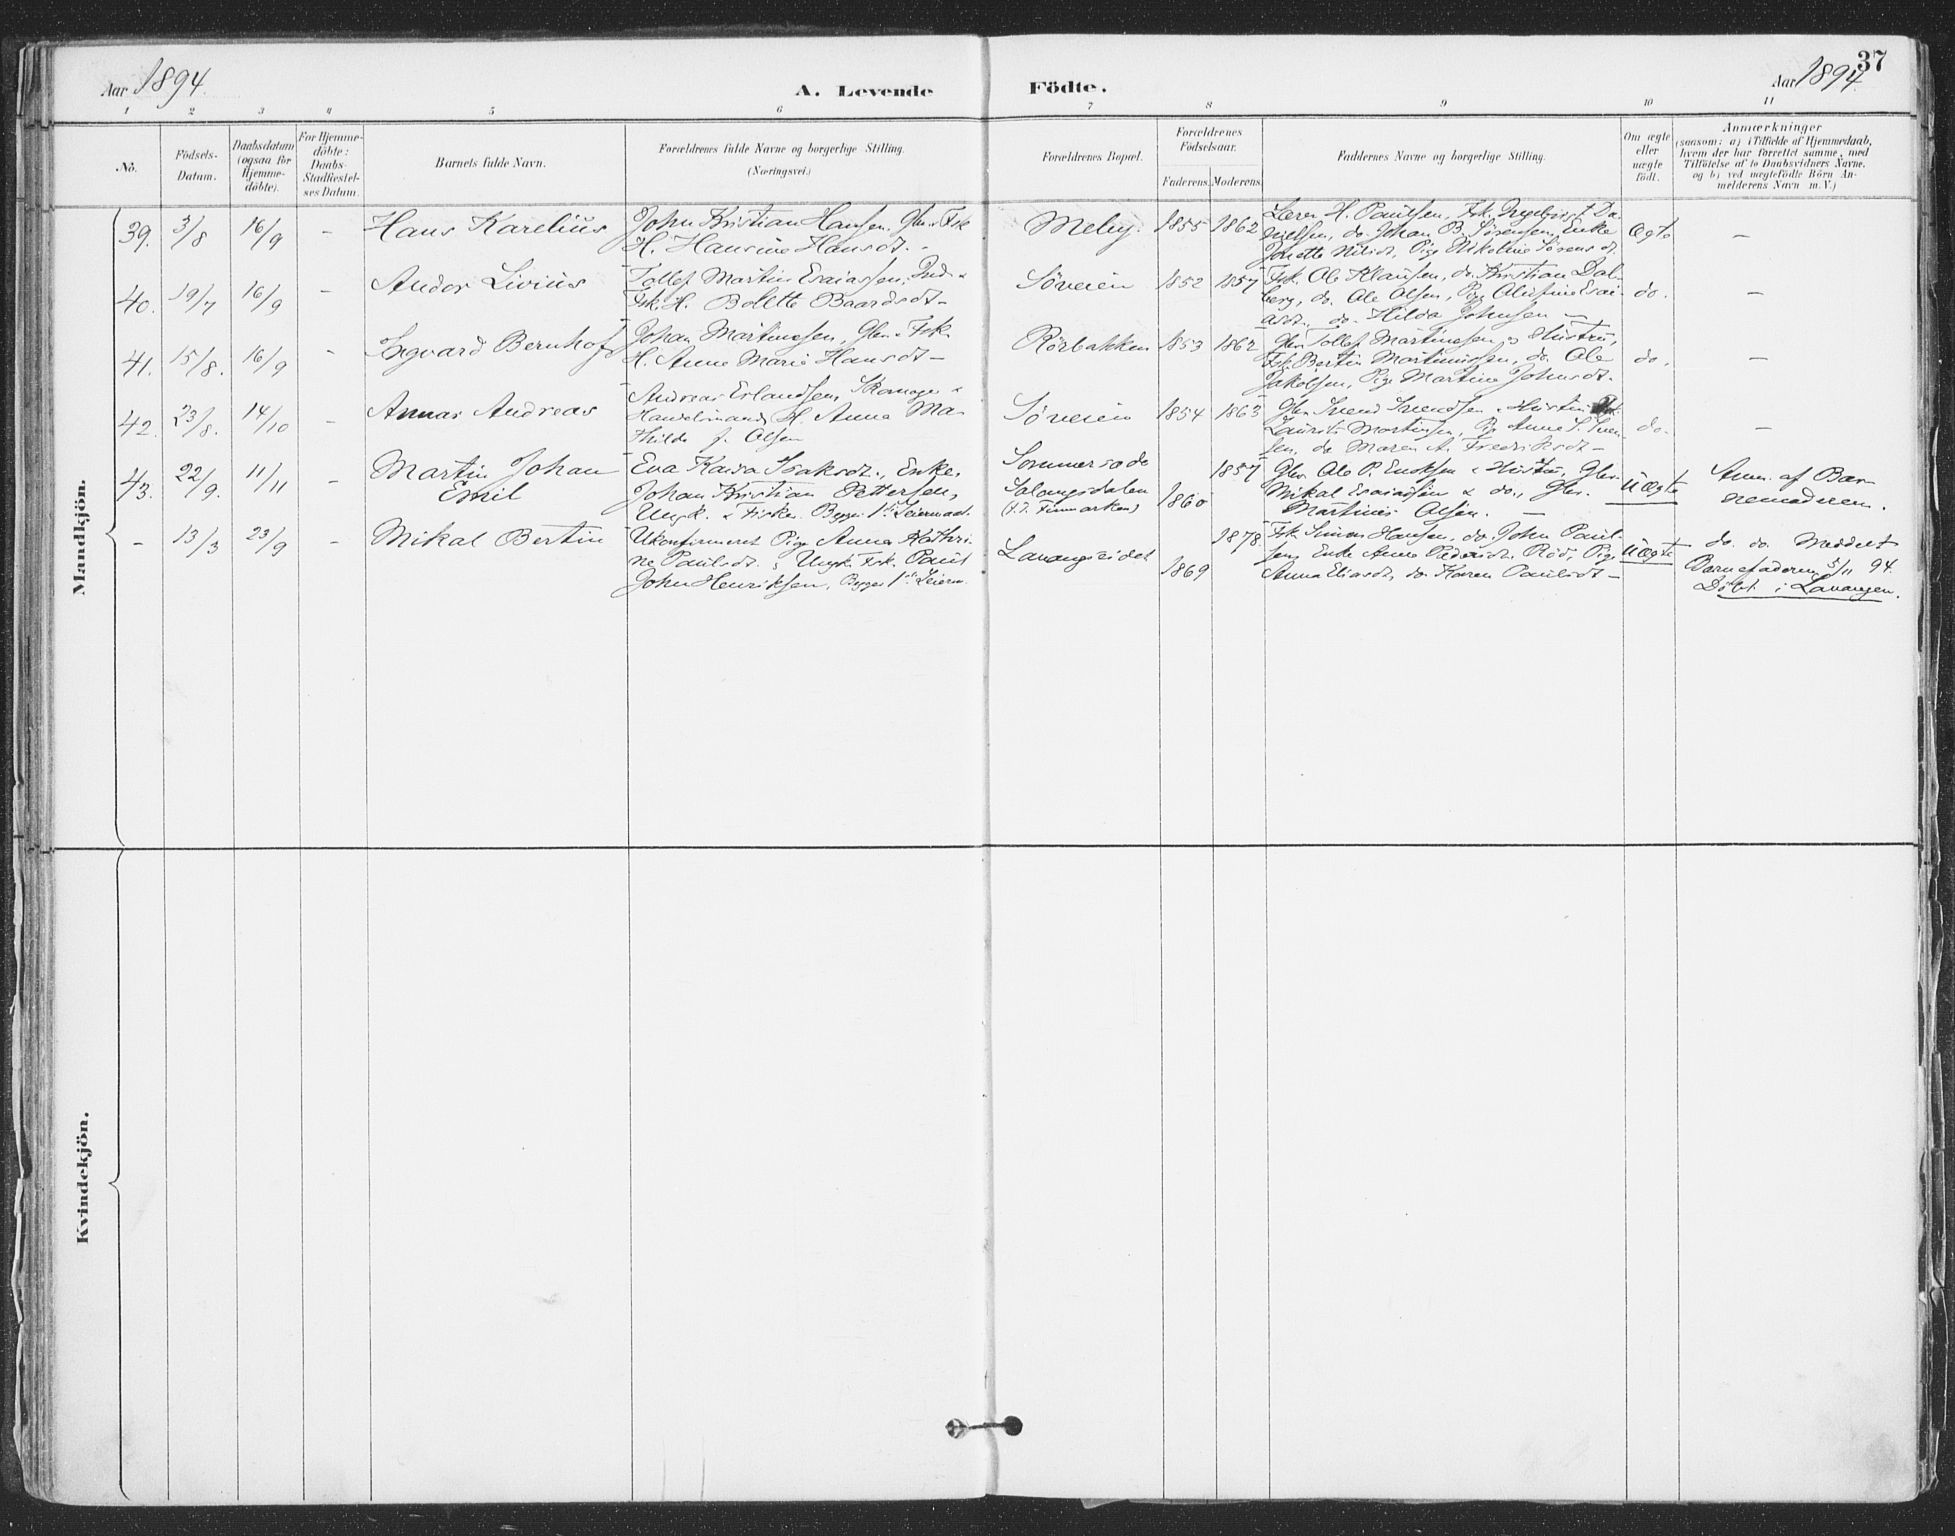 37
Aar 1894.
A. Levende Födte.
Aar 1894.
1 2 3 4 5 6 7 8 9 10 11
No.
Födsels-
Datum.
Daabsdatum
(ogsaa for
Hjemme-
döbte).
For Hjemme-
döbte:
Daabs-
Stadfæstel-
ses Datum.
Barnets fulde Navn.
Forældrenes fulde Navne og borgerlige Stilling.
(Næringsvei.)
Forældrenes Bopæl.
Forældrenes
Födselsaar.
Faderens. Moderens.
Faddernes Navne og borgerlige Stilling.
Om ægte
eller
uægte
födt.
Anmærkninger
(saasom: a) i Tilfælde af Hjemmedaab,
hvem der har forrettet samme, med
Tilföielse af to Daabsvidners Navne,
og b) ved uægtefödte Börn An-
melderens Navn m. V.)
Mandkjön.
39. 3/8 16/9 - Hans Karelius
John Kristian Hansen. Gbr. Fsk
H. Hansine Hansdt. -
Meby. 1855 1862
Lærer H. Paulsen, Fsk. Ingebrigt Da-
nielsen, do. Johan B. Sørensen, Enke
Jonette Nilsdt, Pige Nikoline Sørensdt
Ægte -
40. 19/7 16/9 - Andor Livius
Tollef Martin Esaiassen, Ind. &
Fsk. H. Bolette Baardsdt -
Søveien 1852 1857
Fsk. Ole Klausen, do. Kristian Dal-
berg, do. Ole Olsen, Pige Esai-
asdt. do. Hilda Johnsen -
do. -
41. 15/8. 16/9 - Ingvard Bernhof
Johan Martinssen, Gbr. Fsk.
H. Anne Marie Hansdt -
Rørbakken 1853 1862
Gbr. Tollef Martinssen, og Hustru,
Fsk. Bertin Martinussen, do. Ole
Jakobsen, Pige Martine Johnsdt.
do. -
42. 23/8. 14/10 - Annas Andreas
Andreas Erlandsen, Skomager &
Handelsmand, H. Anna Ma-
thilde f. Olsen
Søveien 1854 1863
Gbr. Svend Svendsen & Hustru
Laurits Martinsen, Pg. Anne S. Sven-
sen, do Maren A. Fredriksdt -
do. -
43. 22/9. 11/11 - Martin Johan
Emil
Eva Kaisa Isaksdt., Enke,
Johan Kristian Pettersen,
Ungk. & Fisker. Begges 1ste Leiermaal.
Sommersæde
Salangsdalen
(f. T. Finmarken)
1860 1857
Gbr. Ole P. Eriksen & Hustru, Gbr.
Mikal Esaiassen & do., Gbr.
Martines Olsen. -
Uægte
Anm. af Bar-
nemoderen.
- 13/3 23/9 - Mikal Bertin
Ukonfirmeret Pige Anna Kathri-
ne Paulsdt. & Ungk. Fsk. Paul
John Henriksen, Begges 1ste Leierm.
Lavangseidet 1869 1878
Fsk. Simon Hansen, do. John Paul-
sen, Enke Anne Pedersdt. Rød, Pige
Anna Eliasdt, do Karen Paulsdt -
Uægte
do. do. Meddelt
Barnefaderen 5/11 94.
Døbt i Lavangen.
Kvindekjön.